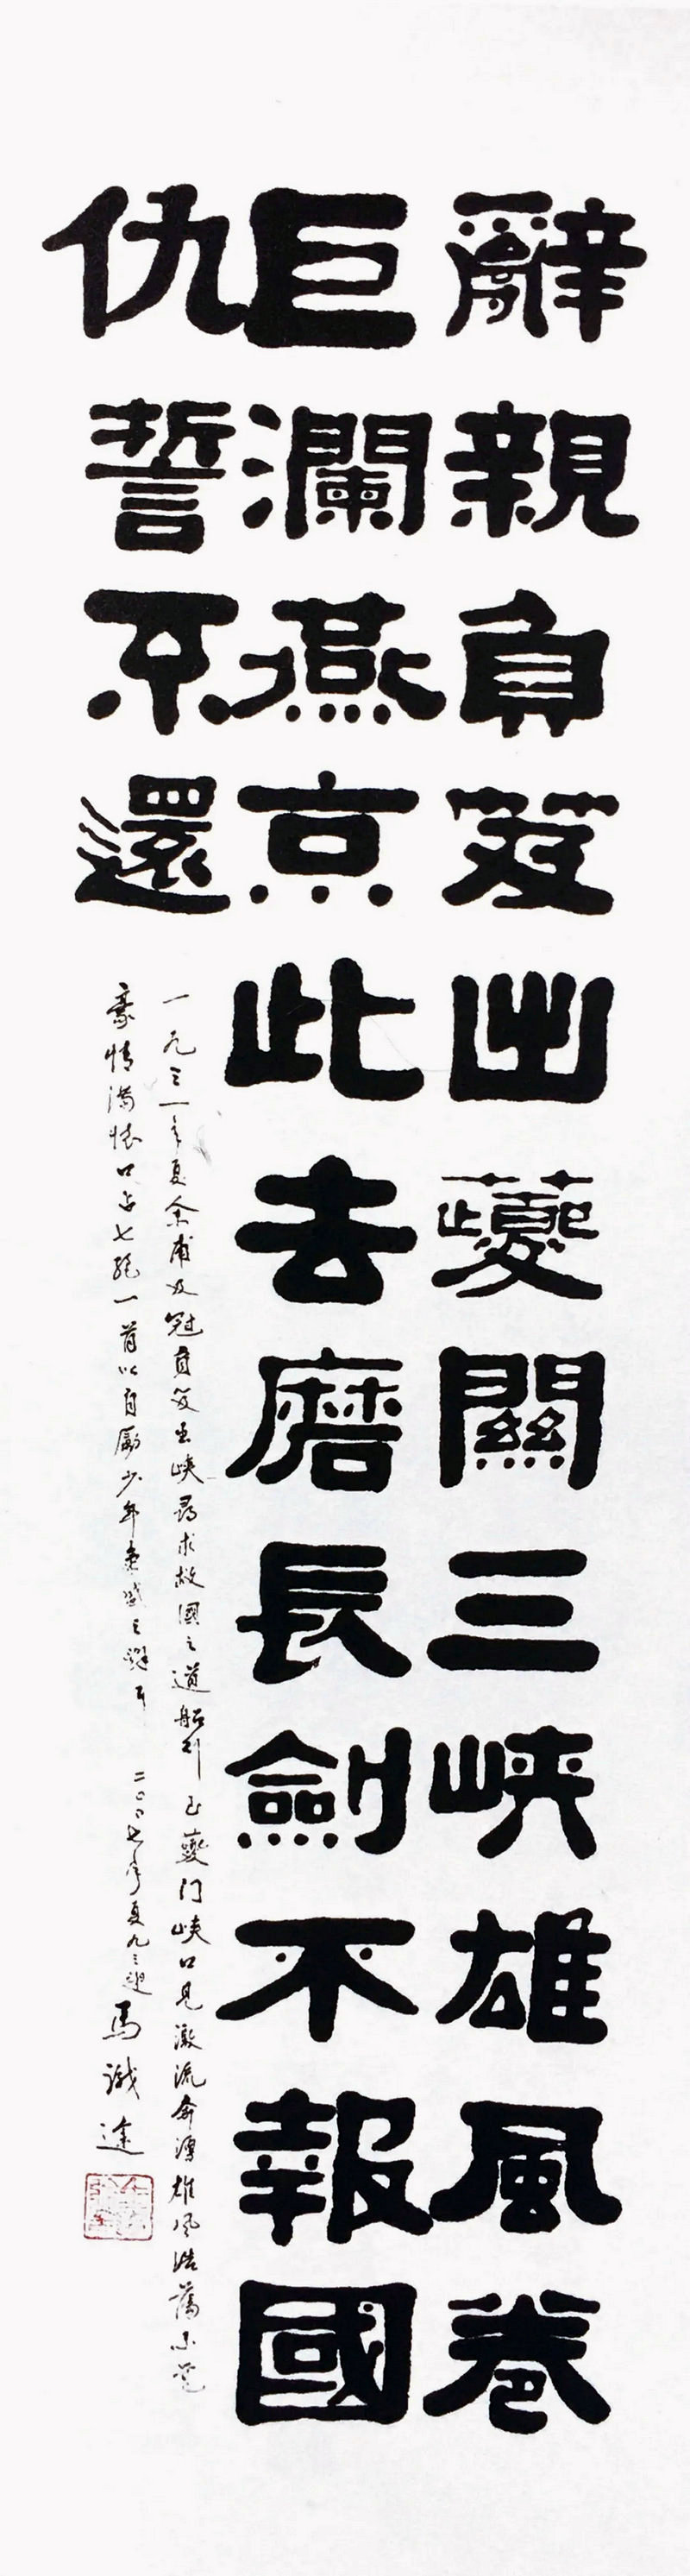 辭親負笈出夔關三峽雄風卷
巨瀾燕京此去磨長劍不報國
仇誓不還
一九三一年夏余甫及冠負笈出峽尋求救國之道船行至夔门峽口見激流奔湧雄风浩蕩不觉
豪情滿懷口占七絕一首以自勵少年氣盛之辭耳 二〇〇七年夏九三叟
馬識途